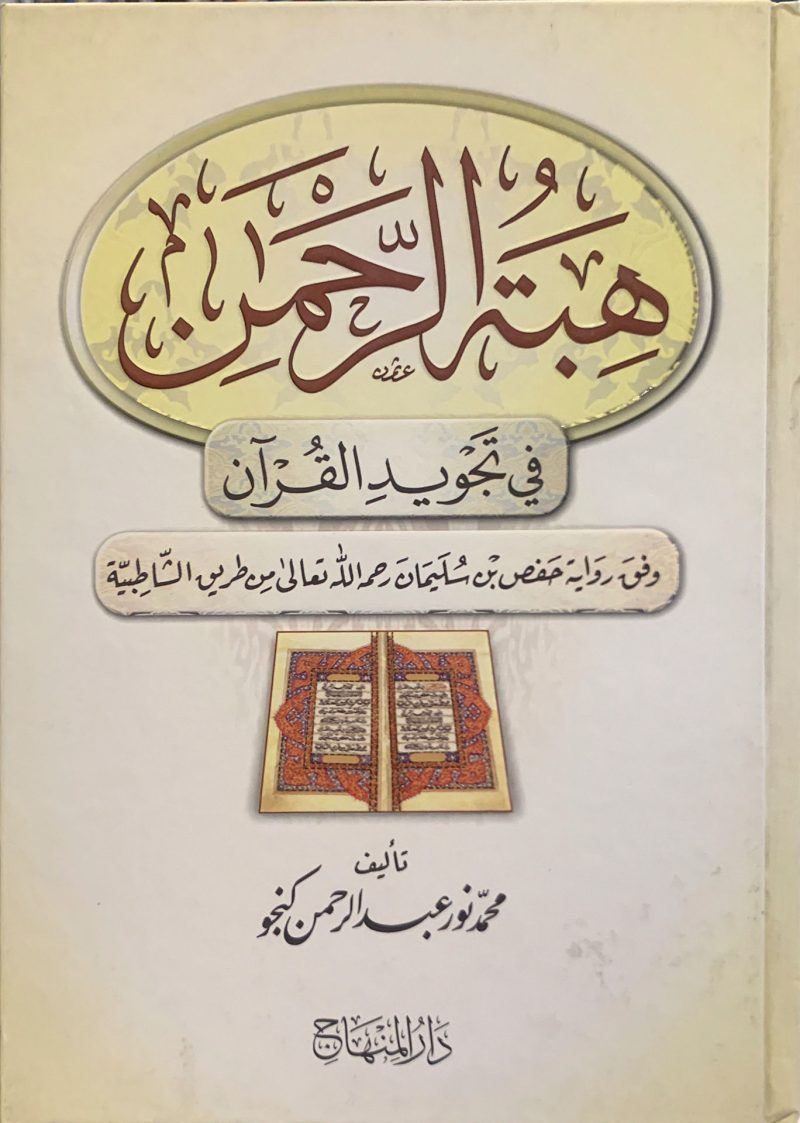 هِبَتُ الرَّحْمٰنِ
في تَجْوِيدِ القُرْآن
وفق رواية حَفص بن سُلَيمَانَ رحمه الله تعالىٰ مِن طريق الشَّاطِبيَّة
تأليف
محمّد نور عبد الرحمن كنجو
دَارُ المِنْهَاج